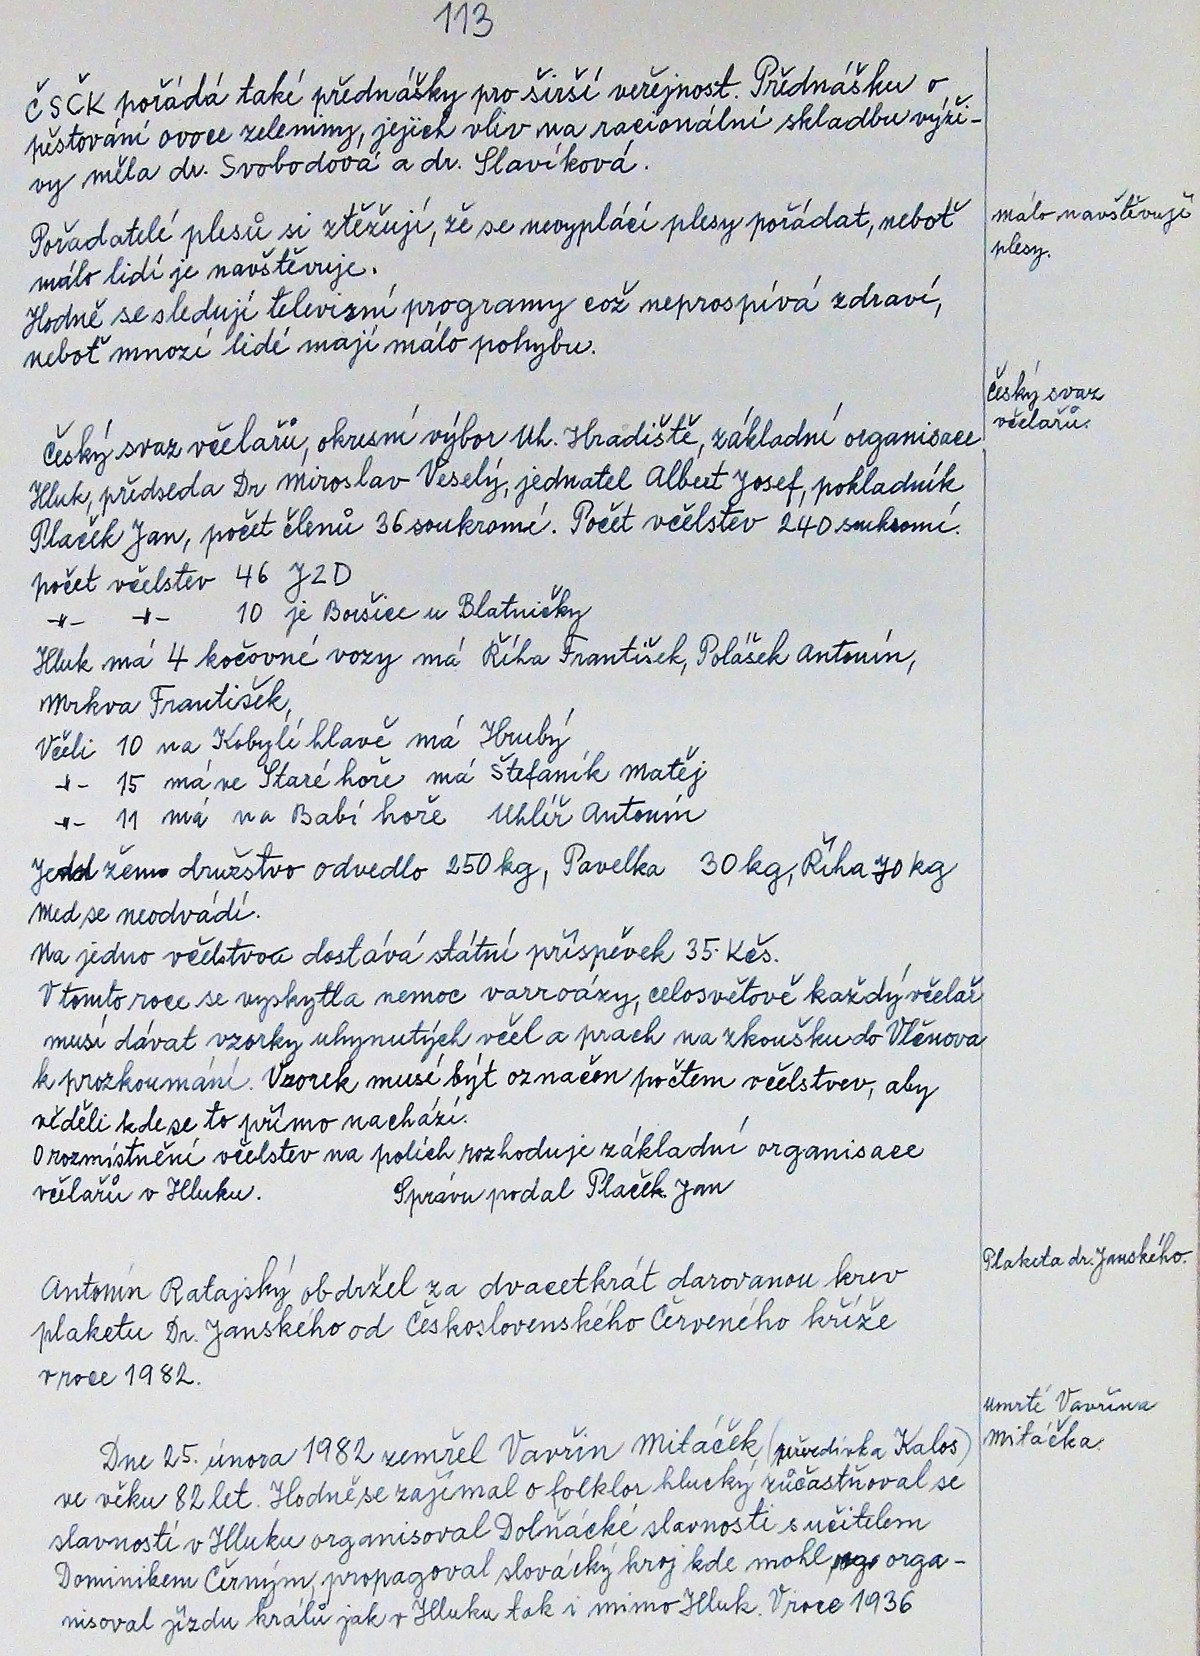 113
ČSČK pořádá také přednášky pro širší veřejnost. Přednášku o
pěstování ovoce zeleniny, jejich vliv na racionální skladbu výži-
vy měla dr. Svobodová a dr. Slavíková.
Pořadatelé plesů si ztěžují, že se nevyplácí plesy pořádat, neboť
málo navštěvují
plesy.
málo lidí je navštěvuje.
Hodně se sledují televizní programy což neprospívá zdraví,
neboť mnozí lidé mají málo pohybu.
Český svaz
včelařů.
Český svaz včelařů, okresní výbor Uh. Hradiště, základní organisace
Hluk, předseda Dr Miroslav Veselý, jednatel Albert Josef, pokladník
Plaček Jan, počet členů 36 soukromí. Počet včelstev 240 soukromí.
počet včelstev 46 JZD
-"- -"- 10 je Boršice u Blatničky
Hluk má 4 kočovné vozy má Říha František, Polášek Antonín,
Mrkva František,
Včeli 10 na Kobylí hlavě má Hrubý
-"- 15 má ve Staré hoře má Štefaník Matěj
-"- 11 má na Babí hoře Uhlíř Antonín
družstvo odvedlo 250 kg, Pavelka 30 kg, Říha 70 kg
Med se neodvádí.
Na jedno včelstvo dostává státní příspěvek 35 Kčs.
V tomto roce se vyskytla nemoc varroázy, celosvětově každý včelař
musí dávat vzorky uhynutých včel a prach na zkoušku do Vlčnova
k prozkoumání. Vzorek musí být označen počtem včelstvev, aby
věděli kde se to přímo nachází.
O rozmístnění včelstev na polích rozhoduje základní organisace
včelařů v Hluku. Správu podal Plaček Jan
Plaketa dr. Janského.
Antonín Ratajský obdržel za dvacetkrát darovanou krev
plaketu Dr. Janského od Československého Červeného kříže
v roce 1982.
Umrtí Vavřína
Mitáčka.
Dne 25. února 1982 zemřel Vavřin Mitáček, (přezdívka Kalos)
ve věku 82 let. Hodně se zajímal o folklor hlucký zůčastňoval se
slavností v Hluku organisoval Dolňácké slavnosti s učitelem
Dominikem Černým, propagoval slovácký kroj kde mohl orga-
nisoval jízdu králů jak v Hluku tak i mimo Hluk. V roce 1936